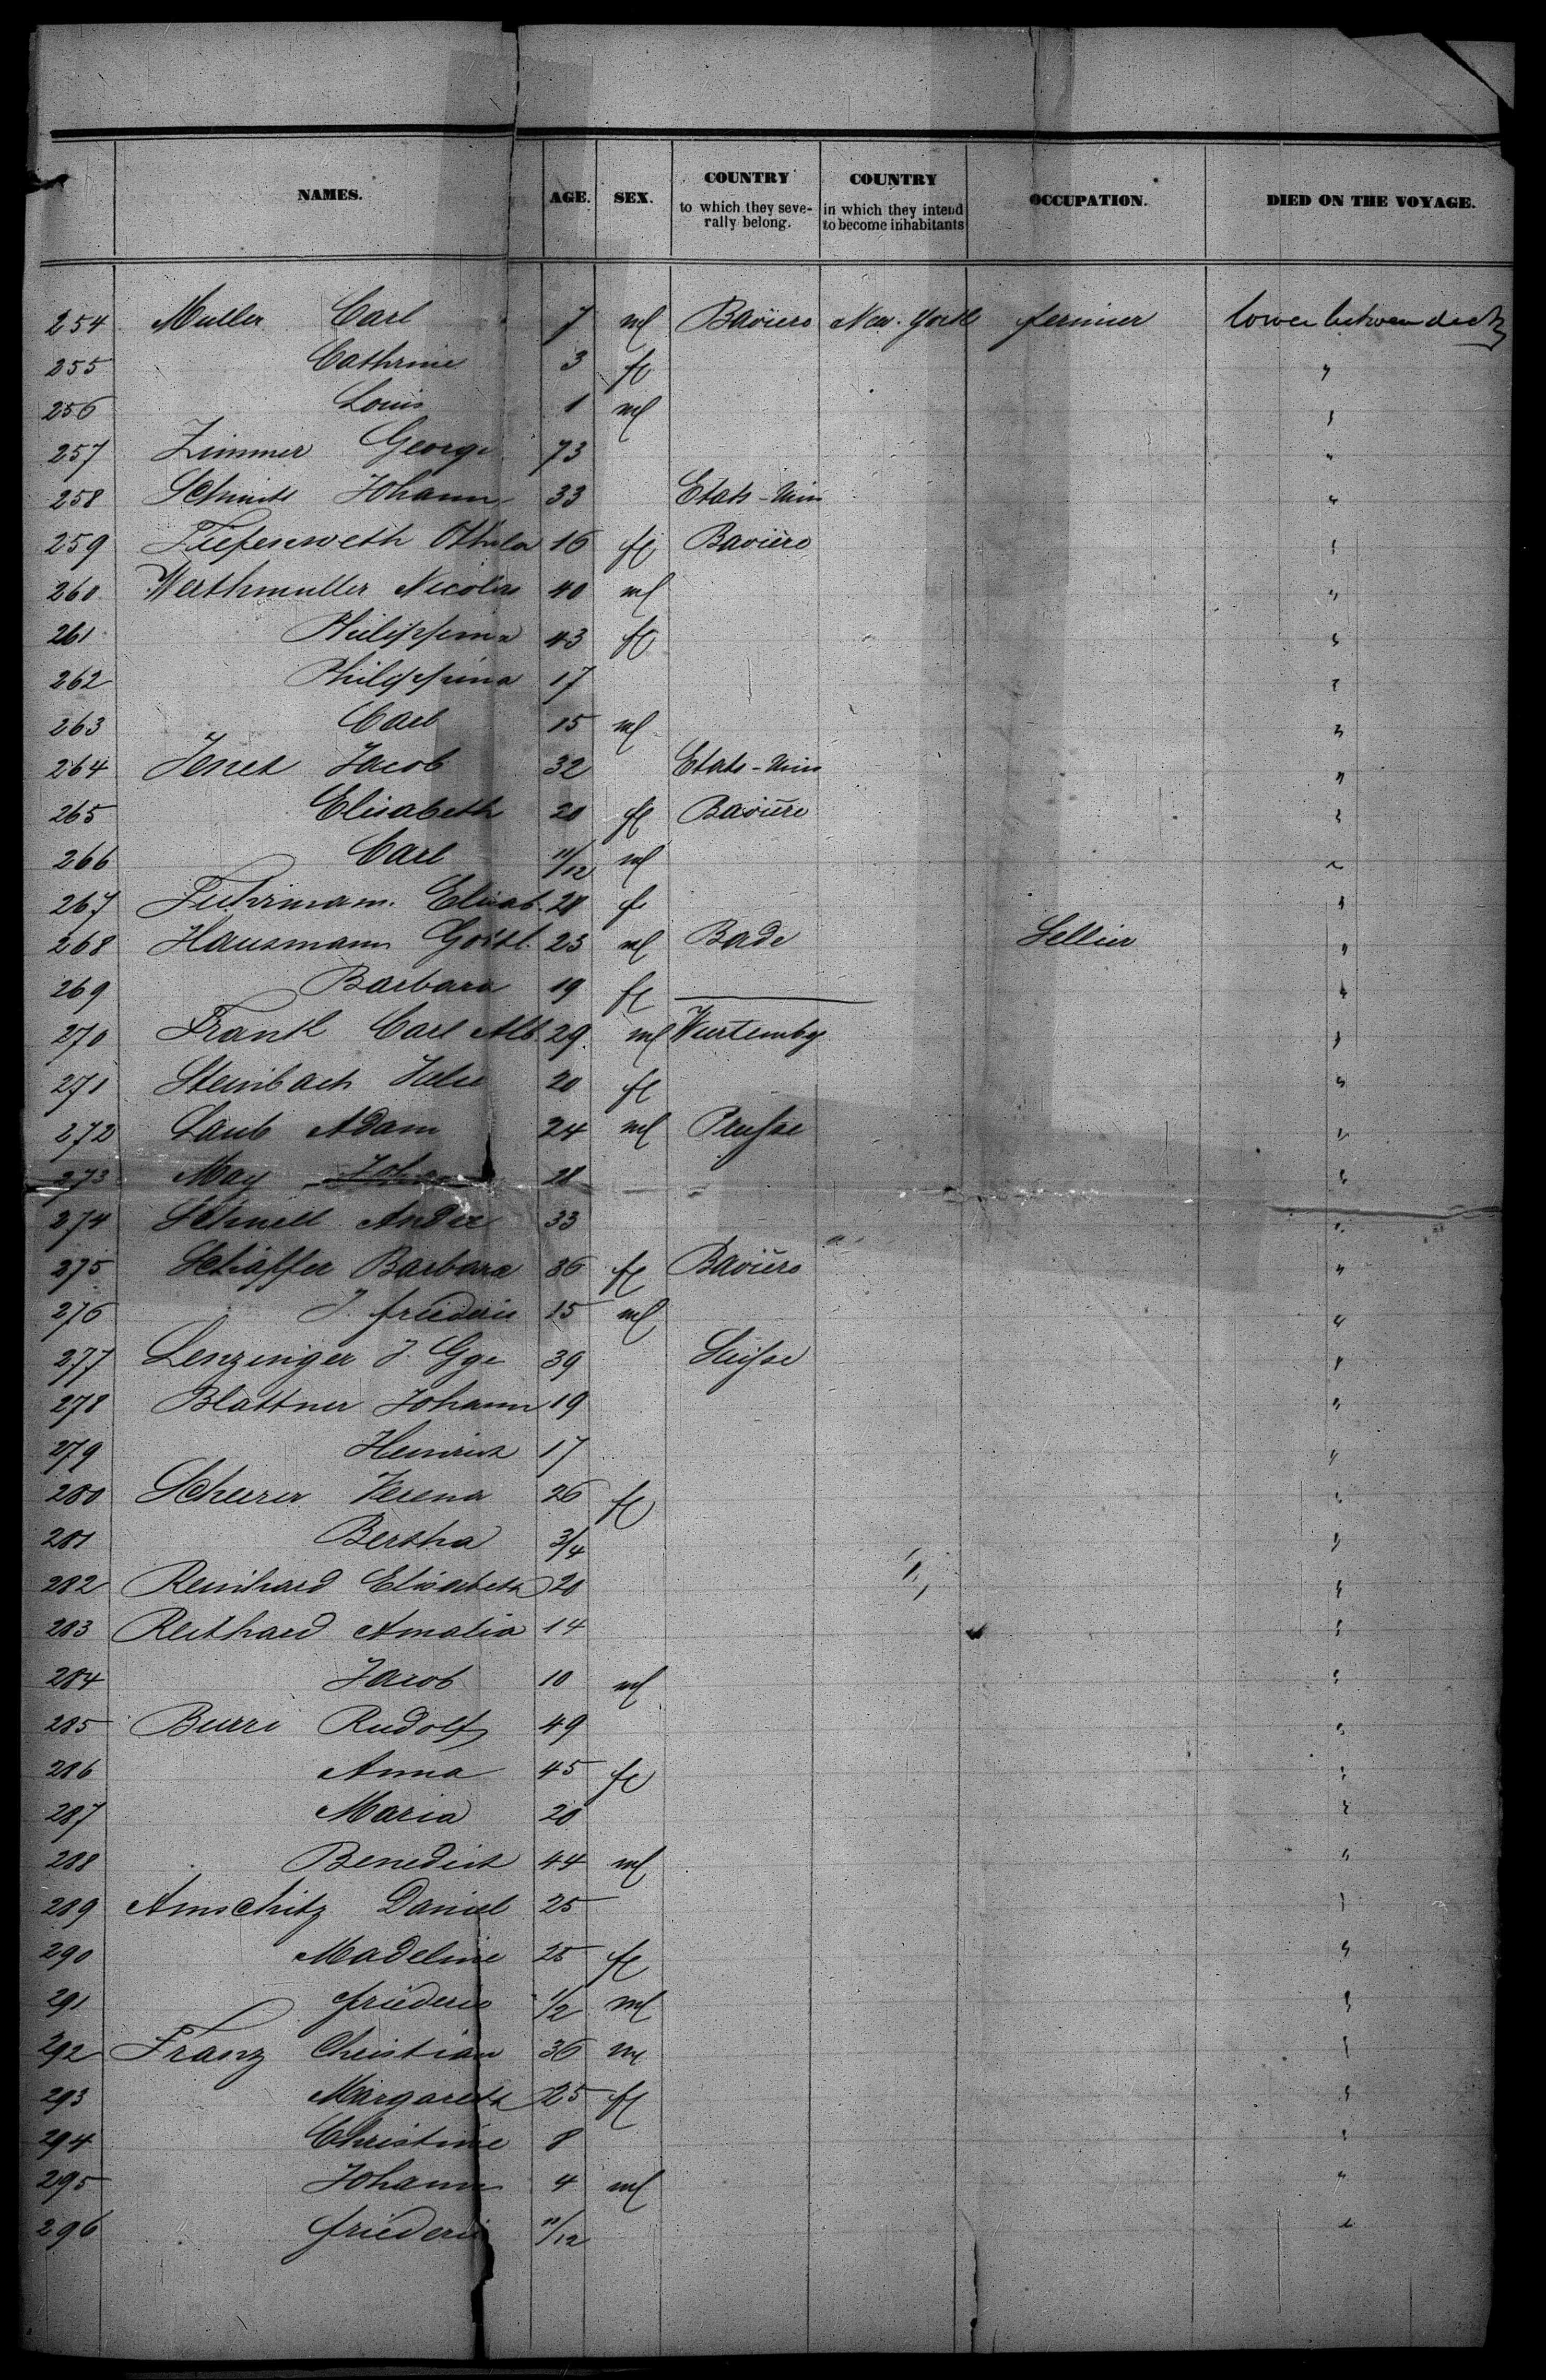 NAMES. AGE. SEX. COUNTRY to which they seve- rally belong. COUNTRY in which they intend to become inhabitants OCCUPATION. DIED ON THE VOYAGE.
254 Muller Carl 7 ml Baviere New-York fermier lower between deck
255 Cathrine 3 fl "
256 Louis 1 ml "
257 Zimmer George 73 "
258 Schmitt Johann 33 Etats-Unis "
259 Tiefenweth 16 fl Baviere "
260 Werthmuller Nicolas 40 ml "
261 Philippina 43 fl "
262 Philippina 17 "
263 Carl 15 ml "
264 Jenet Jacob 32 Etats-Unis "
265 Elisabeth 20 fl Baviere "
266 Carl 11/12 ml "
267 Fuhrmann Elisab. 28 f "
268 Hausmann Gottl. 23 ml Bade Sellier "
269 Barbara 19 fl "
270 Frank Carl Alb. 29 ml Wurtembg "
271 Steinbach 20 fl "
272 Laub Adam 24 ml Prusse "
273 May John 28 "
274 Schnell Andre 33 "
275 Schaffer Barbara 36 fl Baviere "
276 J. friederic 15 ml "
277 Lenzinger J. Gge 39 Suisse "
278 Blattner Johann 19 "
279 Heinrich 17 "
280 Scheerer Verena 26 fl "
281 Bertha 3/4 "
282 Reinhard Elisabeth 20 "
283 Reithard Amalia 14 "
284 Jacob 10 ml "
285 Burri Rudolf 49 "
286 Anna 45 fl "
287 Maria 20 "
288 Benedict 44 ml "
289 Amschitz Daniel 25 "
290 Madeline 25 fl "
291 friederic 1/2 ml "
292 Franz Christian 36 m "
293 Margareth 25 fl "
294 Christine 8 "
295 Johann 4 ml "
296 friederic 11/12 "